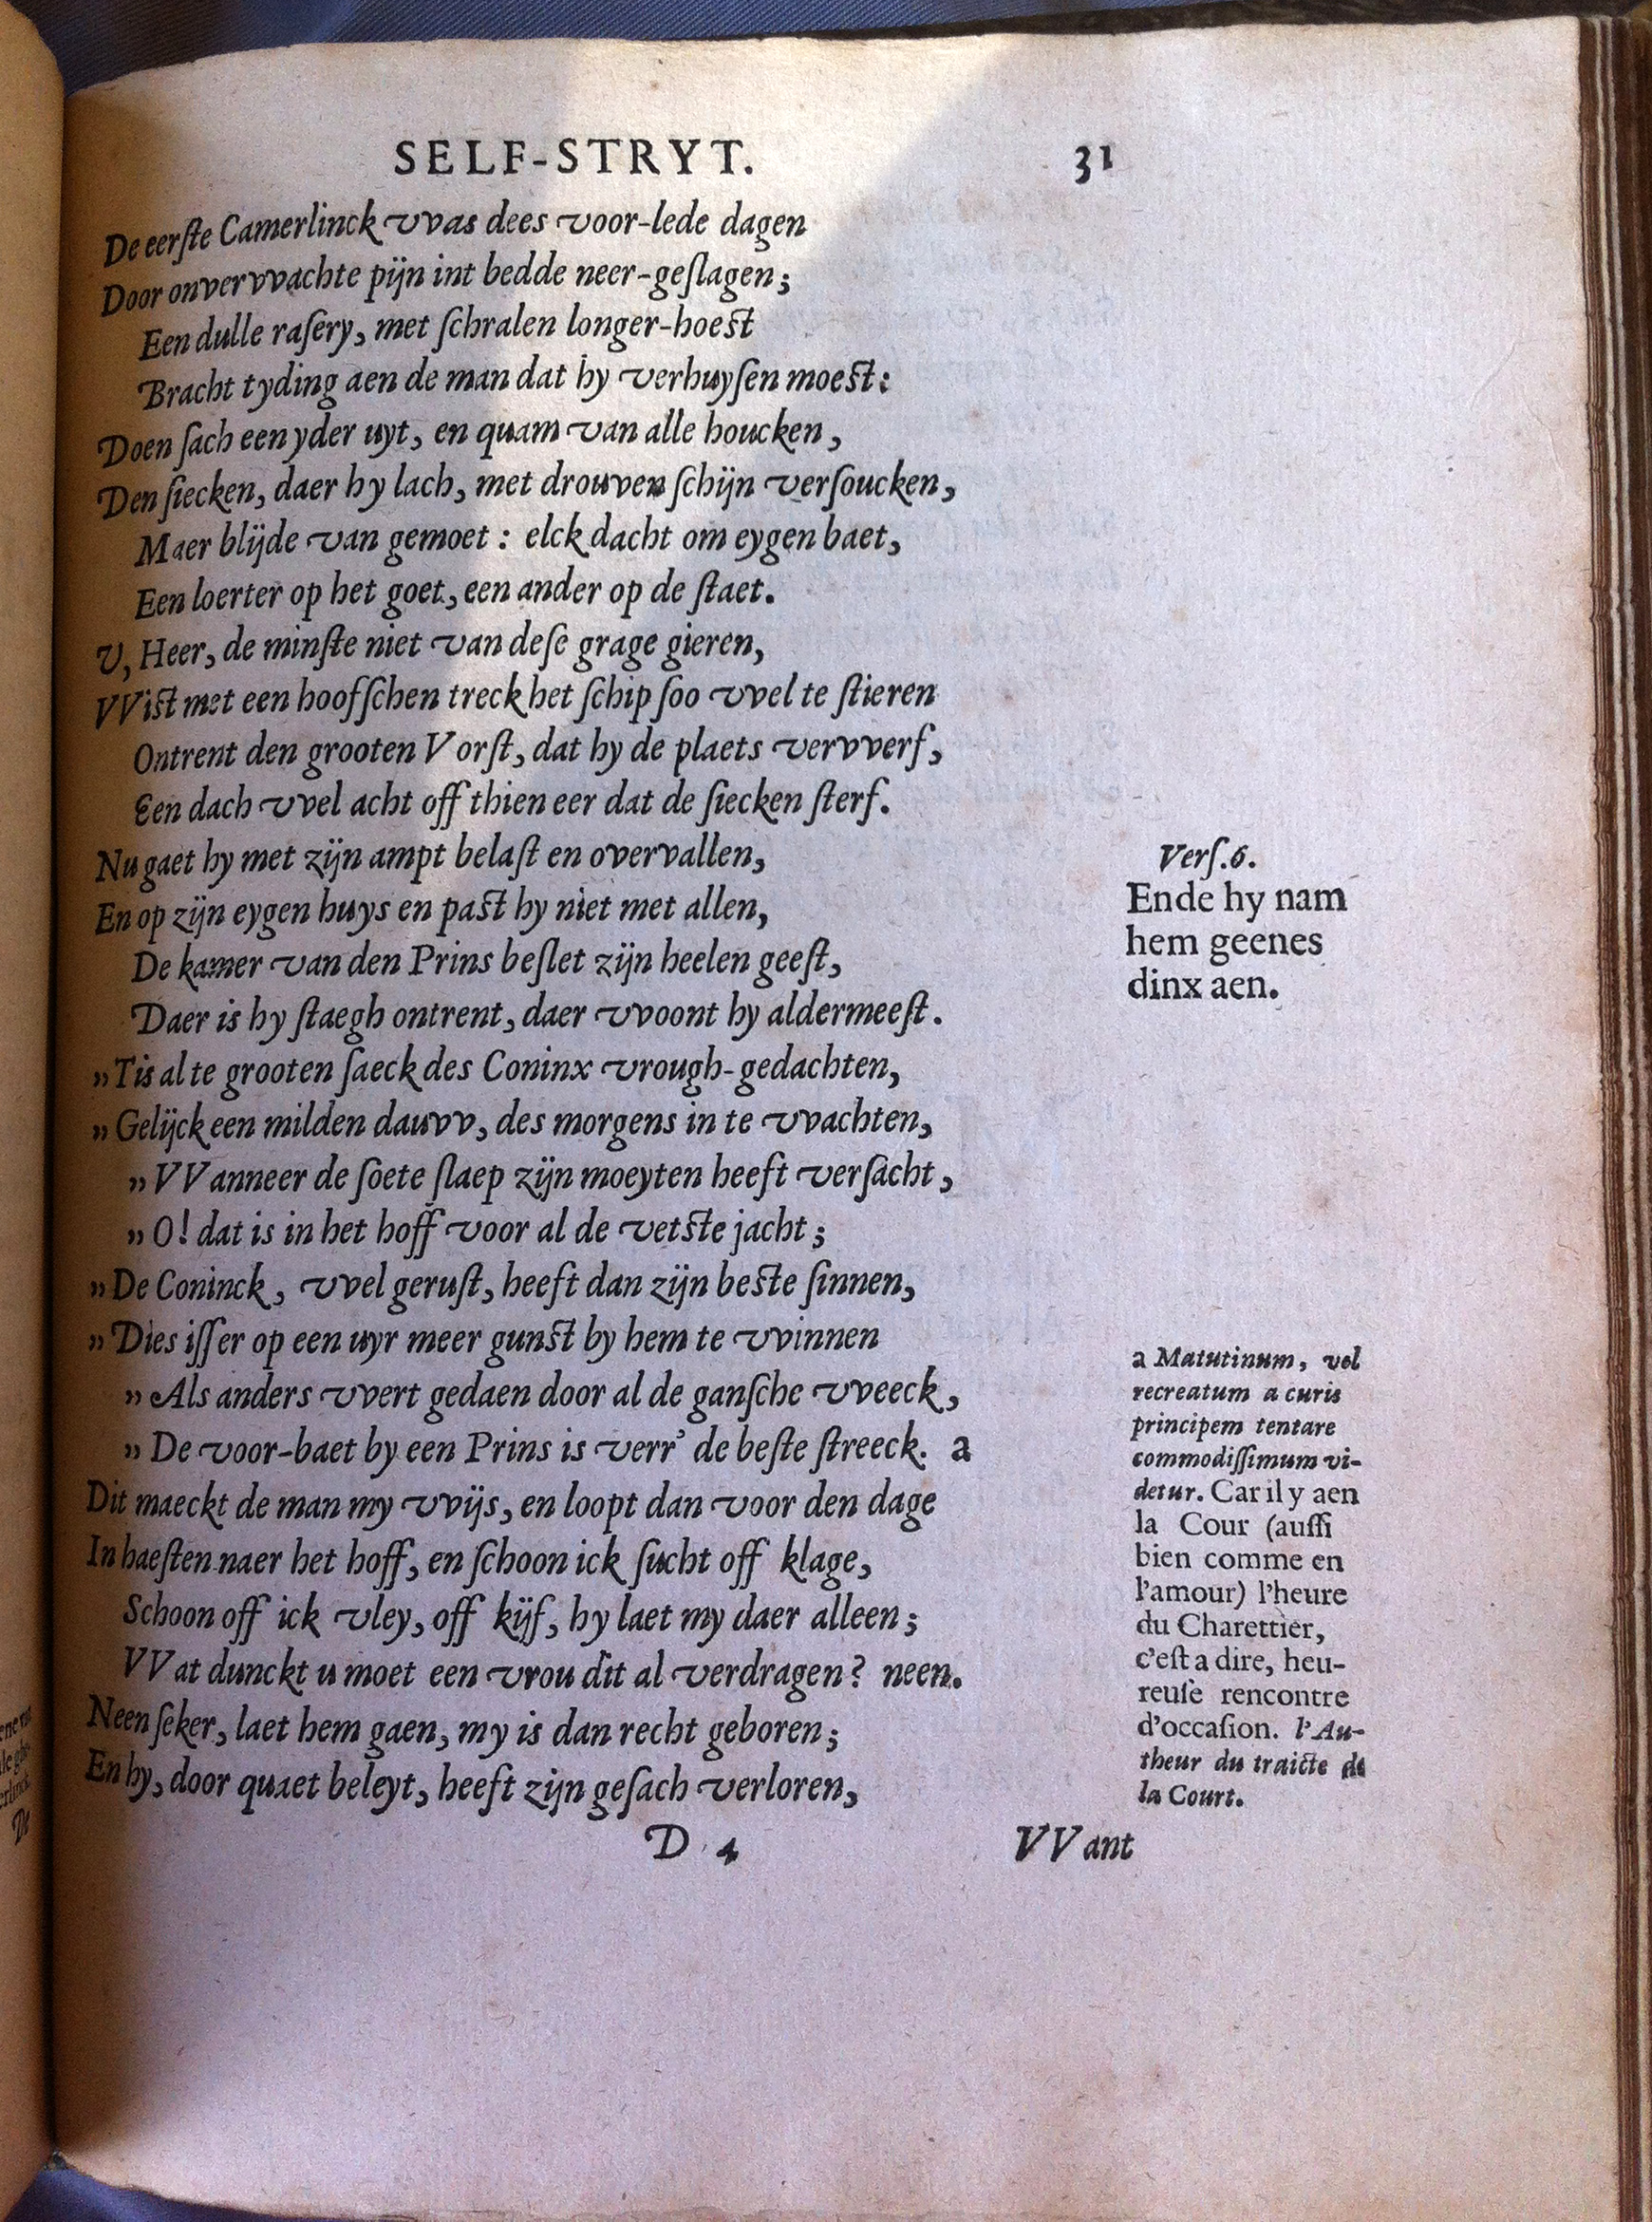 SELF-STRYT. 31
De eerſte Camerlinck vvas dees voor-lede dagen
Door onvervvachte pijn int bedde neer-geſlagen;
Een dulle raſery, met ſchralen longer-hoest
Bracht tyding aen de man dat hy verhuyſen moest:
Doen ſach een yder uyt, en quam van alle houcken,
Den ſiecken, daer hy lach, met drouven ſchijn verſoucken,
Maer blijde van gemoet: elck dacht om eygen baet,
Een loerter op het goet, een ander op de ſtaet.
U, Heer, de minſte niet van deſe grage gieren,
VVist met een hoofſchen treck het ſchip ſoo vvel te ſtieren
Ontrent den grooten Vorſt, dat hy de plaets vervverf,
Een dach vvel acht off thien eer dat de ſiecken ſterf.
Nu gaet hy met zijn ampt belaſt en overvallen,
En op zijn eygen huys en past hy niet met allen,
De kamer van den Prins beſlet zijn heelen geeſt,
Daer is hy ſtaegh ontrent, daer vvoont hy aldermeeſt.
„Tis al te grooten ſaeck des Coninx vrough-gedachten,
„Gelijck een milden dauvv, des morgens in te vvachten,
„VVanneer de ſoete ſlaep zijn moeyten heeft verſacht,
„O! dat is in het hoff voor al de vetste jacht;
„De Coninck, vvel geruſt, heeft dan zijn beste ſinnen,
„Dies iſſer op een uyr meer gunst by hem te vvinnen
„Als anders vvert gedaen door al de ganſche vveeck,
„De voor-baet by een Prins is verr' de beſte ſtreeck. a
Dit maeckt de man my vvijs, en loopt dan voor den dage
In haeſten naer het hoff, en ſchoon ick ſucht off klage,
Schoon off ick vley, off kijf, hy laet my daer alleen;
VVat dunckt u moet een vrou dit al verdragen? neen.
Neen ſeker, laet hem gaen, my is dan recht geboren;
En hy, door quaet beleyt, heeft zijn geſach verloren,
D 4 VVant
Verſ.6.
Ende hy nam
hem geenes
dinx aen.
a Matutinum, vel
recreatum a curis
principem tentare
commodiſſimum vi-
detur. Car il y aen
la Cour (auſſi
bien comme en
l'amour) l'heure
du Charettier,
c'eſt a dire, heu-
reuſe rencontre
d'occaſion. l'Au-
theur du traicte de
la Court.